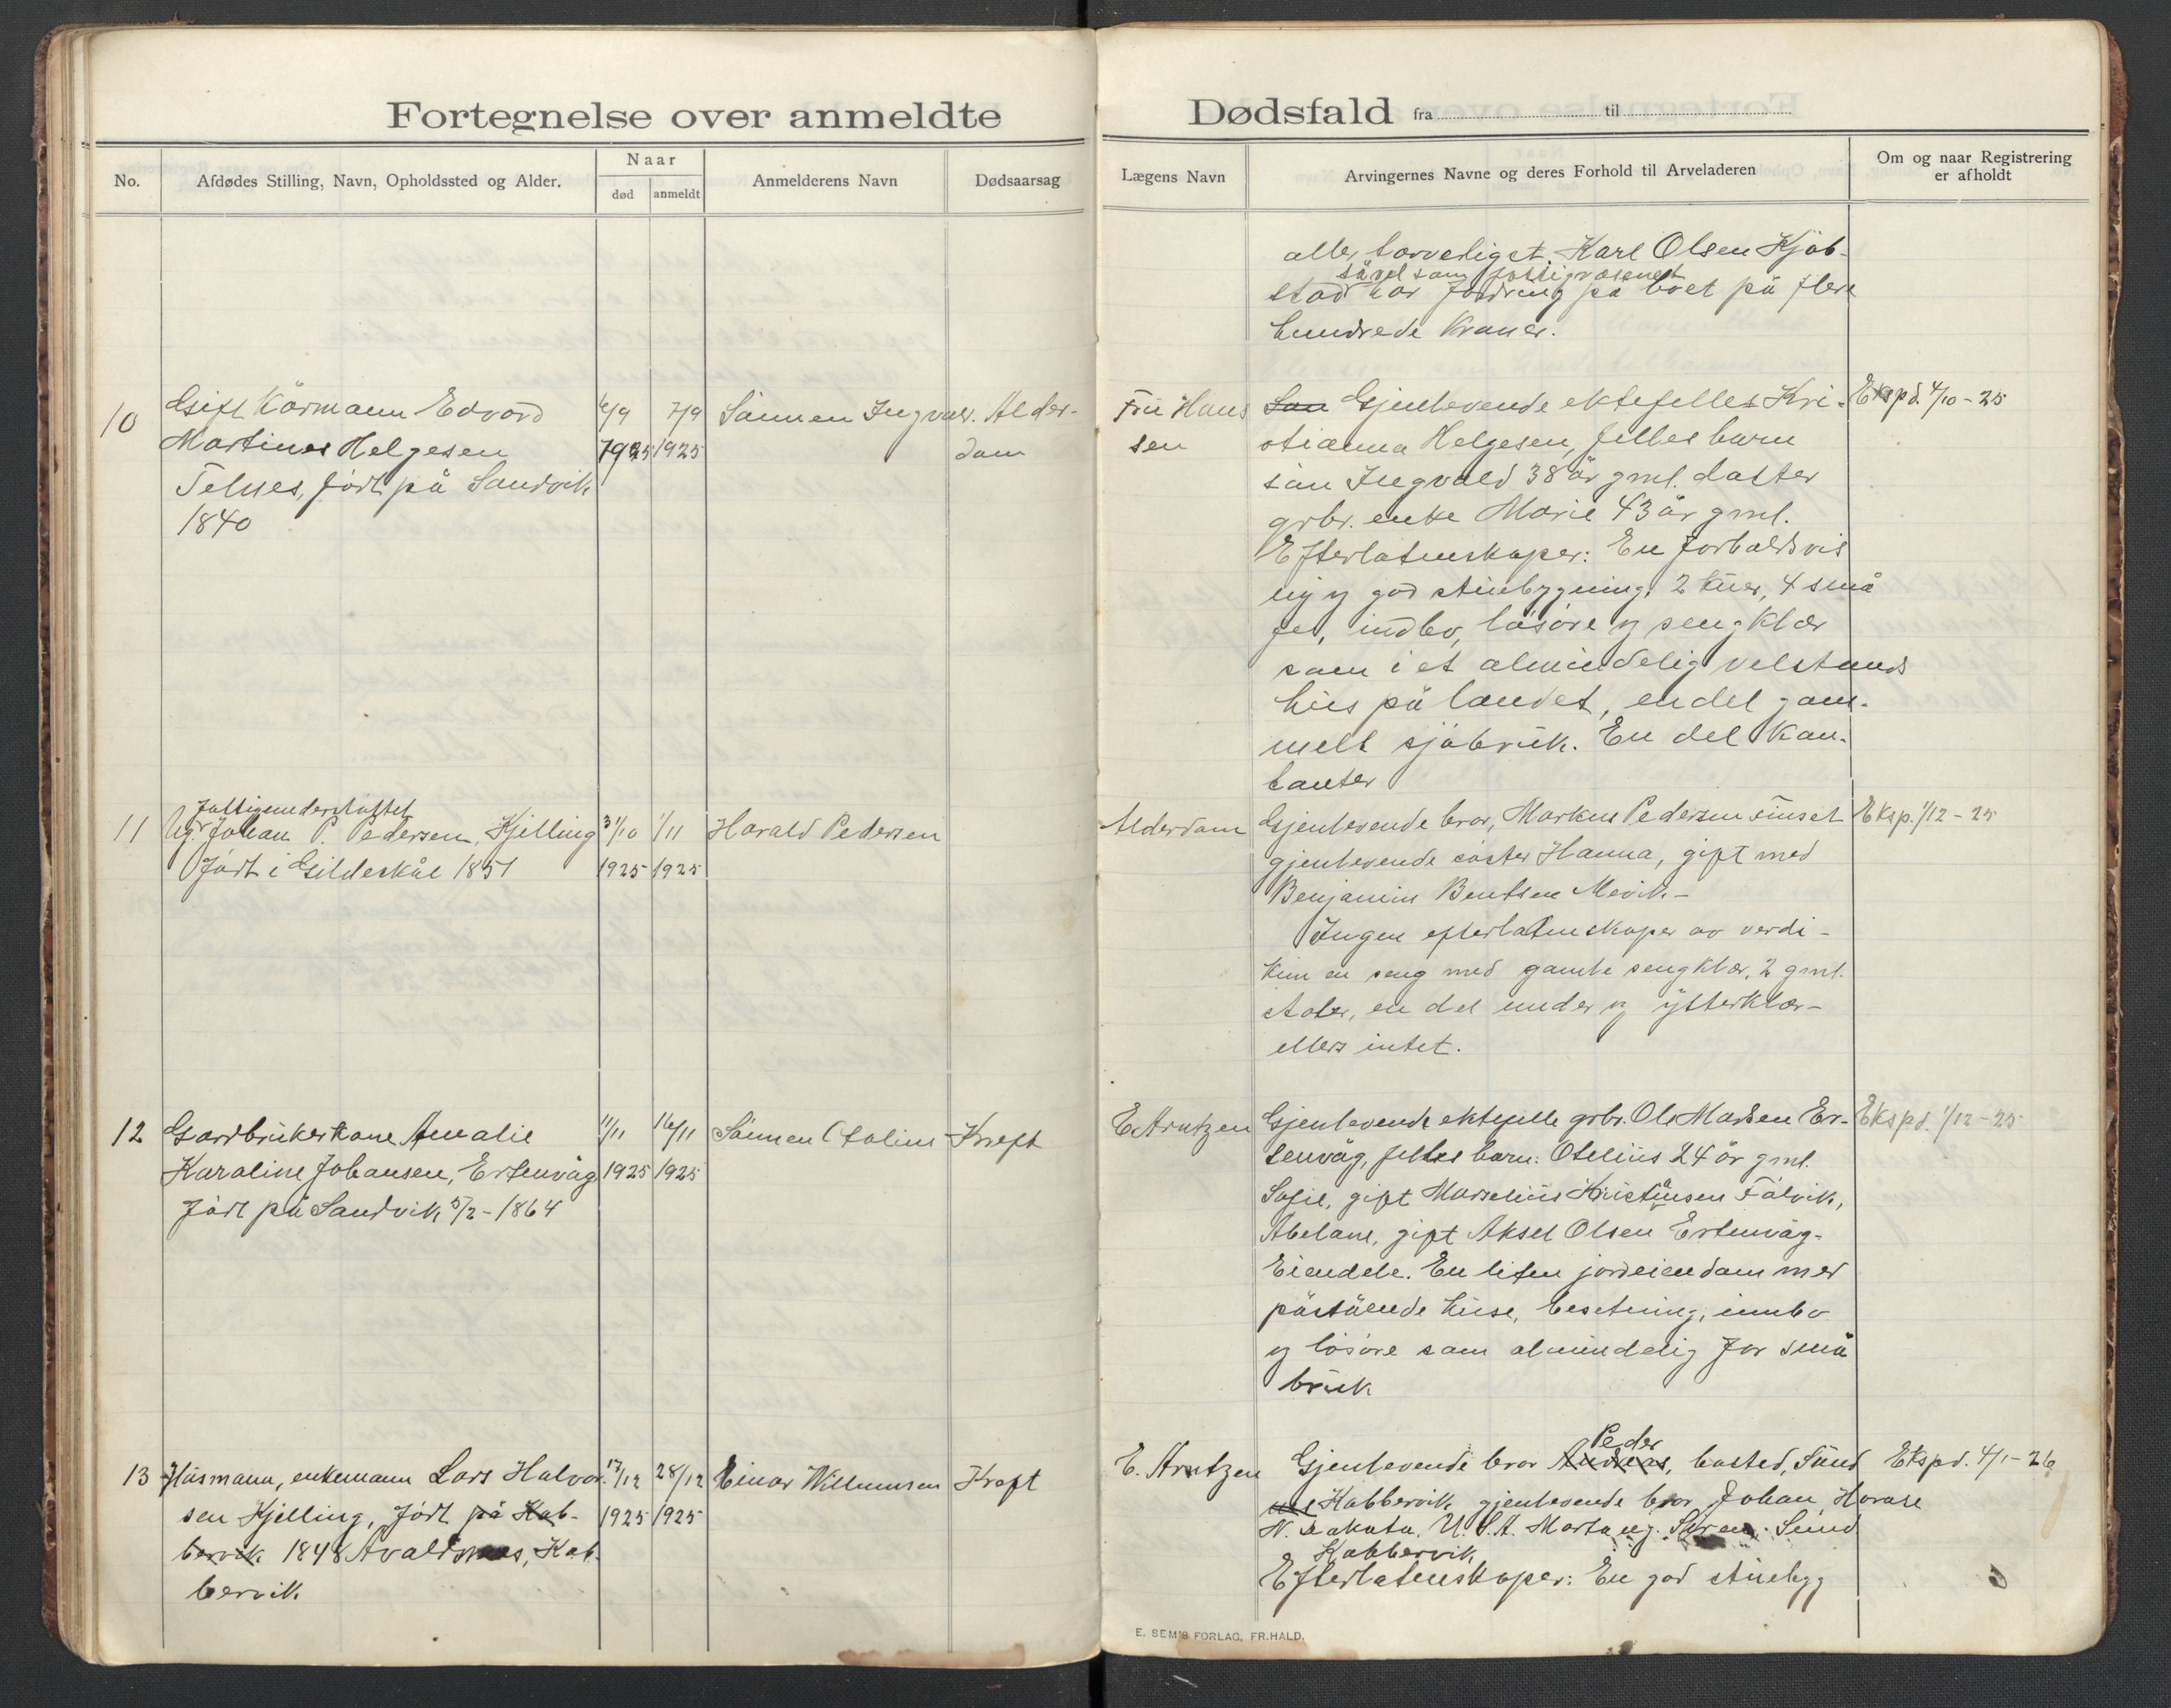 Fortegnelse over anmeldte
Dødsfald fra til
No.
Afdødes Stilling, Navn, Opholdssted og Alder.
Naar
død
anmeldt
Anmelderens Navn
Dødsaarsag
Lægens Navn
Arvingernes Navne og deres Forhold til Arveladeren
Om og naar Registrering
er afholdt
alle, Karl Olsen Kjöb-
såvel som fattigvæsenet
stad har fordring på boet på flere
hundrede kroner.
10
Gift Kårmann Edvard
Martines Helgesen
Telnes, født på Sandvik
1840
6/9
1925
7/9
1925
Sönnen Ingvar.
Alder-
dom
Fru Han
sen
Gjenlevende ektefelles Kri-
stianna Helgesen, felles barn
sön Ingvald 38 år gml. datter
grbr. enke Marie 43 år gml.
Efterlatenskaper: En forholdsvis
ny og god stuebygning, 2 kuer, 4 små
fe, indbo, lösöre og sengklær
som i et almindelig velstands
hus på landet, endel gam-
melt sjöbruk. En del kon-
tanter
Ekspd. 4/10-25
11
Fattigunderstöttet
Ug. Johan P. Pedersen, Kjelling
Födt i Gildeskål 1851
31/10
1925
1/11
1925
Harald Pedersen
Alderdom
Gjenlevende bror, Markus Pedersen Finset
gjenlevende söster Hanna, gift med
Benjamin Bentsen Mevik-
Ingen efterlatenskaper av verdi-
Kun en seng med gamle sengklær, 2 gml.
stoler, en del under og ytterklær-
ellers intet.
Eksp. 1/12-25
12
Gardbrukerkone Amalie
Karoline Johansen, Ertenvåg
født på Sandvik 5/2-1864
11/11
1925
16/11
1925
Sönnen Otelius
Kreft
E. Arntzen
Gjenlevende ektefelle grbr. Ole Madsen Er-
tenvåg, felles barn: Otelius 24 år gml.
Sofie, gift Marselius Kristensen Fålvik,
Abelone, gift Aksel Olsen Ertenvåg-
Eiendele. En liten jordeiendom med
påstående huse, besetning, innbo
og lösöre som almindelig for små
bruk
Ekspd. 1/12-25
13
Husmann, enkemann Lars Halvor-
sen Kjelling, födt på Kab-
bervik 1848 Åvaldsnes, Kab-
bervik
17/12
1925
28/12
1925
Einar Willumsen
Kreft
E. Arntzen
Peder
Gjenlevende bror Anders, bosted, Sund
Kabbervik, gjenlevende bror Johan, Horase
N. Dakota, U.S.A. Marta ug. Sund
Kabbervik
Efterlatenskaper: En god stuebygg
Ekspd. 4/1-26
E. SEM'S FORLAG, FR.HALD.